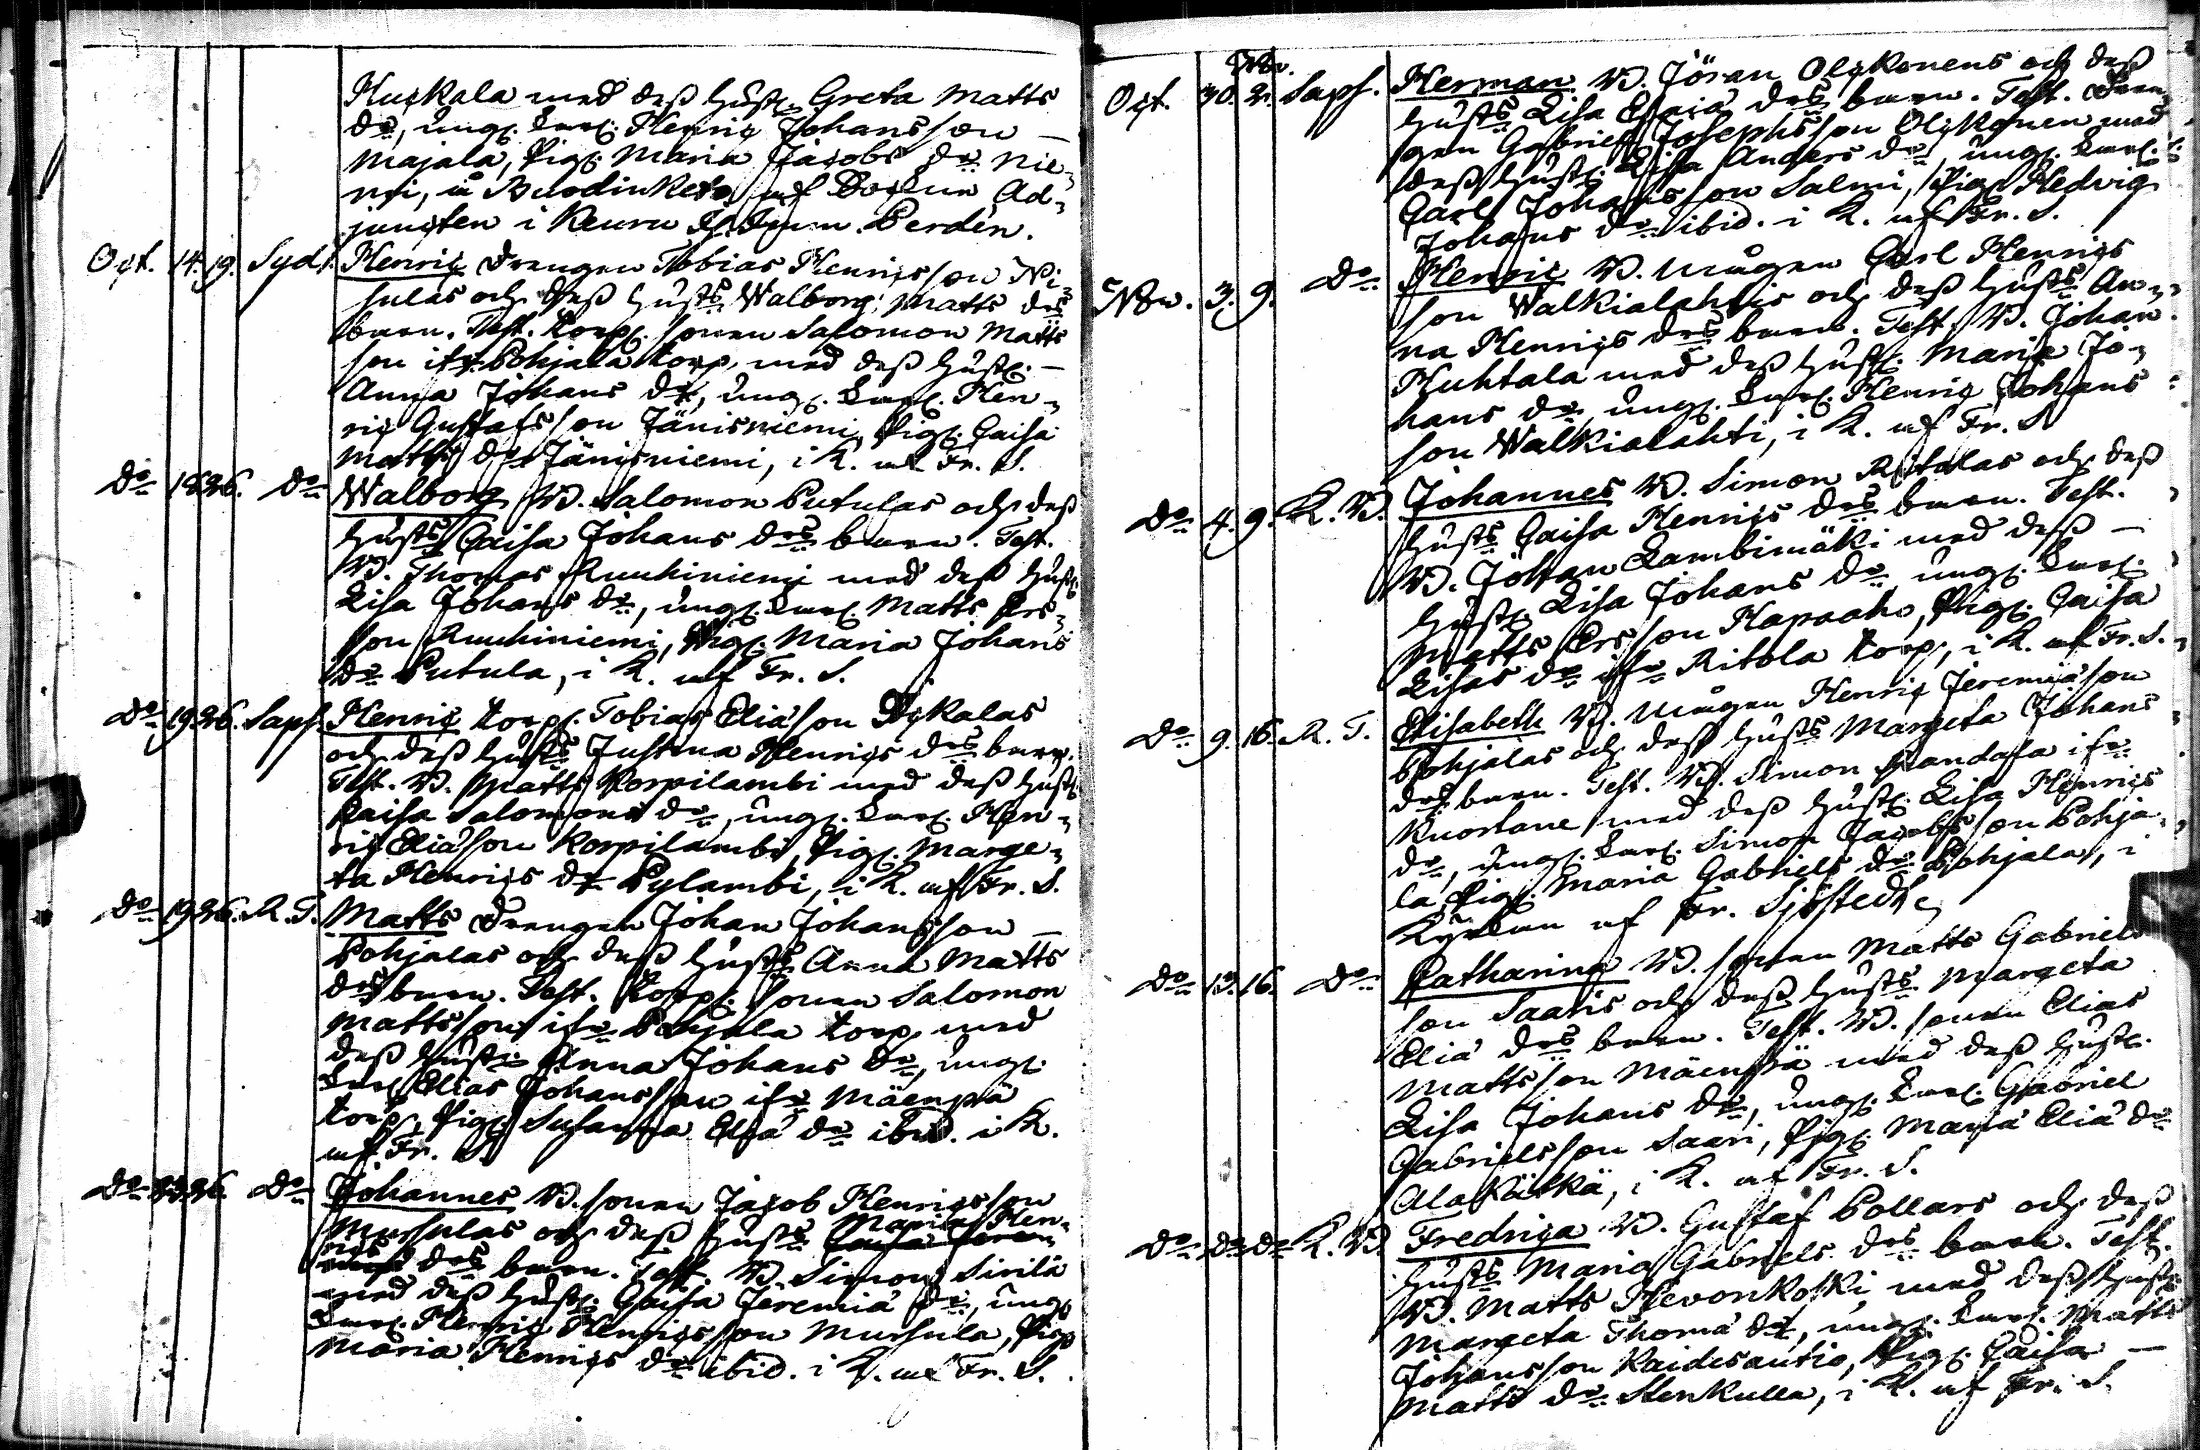 Huskala med deß hust. Greta Matts
dr, ungk. Karl. Henric Johansson
Majala, Pig. Maria Jacobs dr Nie-
mi, af Docken Ad-
juncten i Keuru H. Perdén.
Oct. 14. 19. Syd. Henric Drengen Tobias Henricsson Ni-
sulas och deß hust:s Walborg Matts drs
barn. Test. Torp. sonen Salomon Matts
son ifr. Pohjala torp, med deß hust.
Anna Johans dr, ungk. Karl. Hen-
ric Gustafsson Jänisniemi, Pig. Caisa
Matts dr Jänisniemi, i K. af Fr. S.
Do 18. 26. Do Walborg B. Salomon Putulas och deß
hust:s Caisa Johans drs barn. Test.
B. Thomas Ruuhiniemi med deß hust.
Lisa Johans dr, ungk. Karl. Matts Ers-
son Ruuhiniemi, Pig. Maria Johans
dr Putula, i K. af Fr. S.
Do 19. 26. Saps. Henric Torp. Tobias Eliäson
och deß hust:s Justina Henrics drs barn.
Test. B. Matts Korpilambi med deß hust.
Kaisa Salomons dr, ungk. Karl. Hen-
ric Eliäson Korpilambi, Pig. Marge-
ta Henrics dr Pylambi, i K. af Fr. S.
Do 19. 26. R. T. Matts Drengen Johan Johansson
Pohjalas och deß hust:s Anna Matts
drs barn. Test. Torp. sonen Salomon
Mattsson ifr. Pohjala torp med
deß hust. Anna Johans dr, ungk.
Karl. Elias Johansson ifr Mäenpä
torp, Pig. Susanna Eliä dr ibid. i K.
af Fr. S.
Do 23. 26. Do Johannes B. sonen Jacob Henricsson
Mursulas och deß hust:s Maria Hen-
rics drs barn. Test. B. Simon Sirilä
med deß hust. Caisa Jeremiä dr, ungk.
Karl. Henric Henricsson Mursula, Pig.
Maria Henrics dr ibid. i K. af Fr. S.
Nov.
Oct. 30. 2. Saps. Herman B. Jöran Olkkonens och deß
hust:s Lisa Esaiä drs barn. Test. Dren-
gen Gabriel Josephsson Olkkonen med
deß hust. Lisa Anders dr, ungk. Karl.
Carl Johansson Salmi, Pig. Hedvig
Johans dr ibid. i K. af Fr. S.
Nov. 3. 9. Do Henric B. Mågen Carl Henrics
son Walkialahtis och deß hust:s An-
na Henrics drs barn. Test. B. Johan
Huhtala med deß hust. Maria Jo-
hans dr, ungk. Karl. Henric Johans
son Walkialahti, i K. af Fr. S.
Do 4. 9. K. B. Johannes B. Simon Ritolas och deß
hust:s Caisa Henrics drs barn. Test.
B. Johan Lambimäki med deß
hust. Lisa Johans dr, ungk. Karl.
Matts Ersson Hapaaho, Pig. Caisa
Lisas dr ifr Ritola torp, i K. af Fr. S.
Do 9. 16. R. T. Elisabeth B. Mågen Henric Jeremiäson
Pohjalas och deß hust:s Margeta Johans
drs barn. Test. B. Simon ifr
Kuorlane med deß hust. Lisa Henrics
dr, Ungk. Karl. Simon Jacobsson Pohja-
la, Pig. Maria Gabriels dr Pohjala, i
Kyrkan af Fr. Sjöstedt.
Do 13. 16. Do Catharina B. sonen Matts Gabriels
son Saaris och deß hust:s Margeta
Eliä drs barn. Test. B. sonen Elias
Mattsson Mäenpä med deß hust.
Lisa Johans dr, ungk. Karl. Gabriel
Gabrielsson Saari, Pig. Maria Eliä dr
Alakälkä, i K. af Fr. S.
Do Do Do K. B. Fredrica B. Gustaf Pollars och deß
hust:s Maria Gabriels drs barn. Test.
B. Matts Hevonkoski med deß hust.
Margeta Thomä dr, ungk. Karl. Matts
Johansson Raidesautio, Pig. Caisa
Matts dr Stenkulla, i K. af Fr. S.